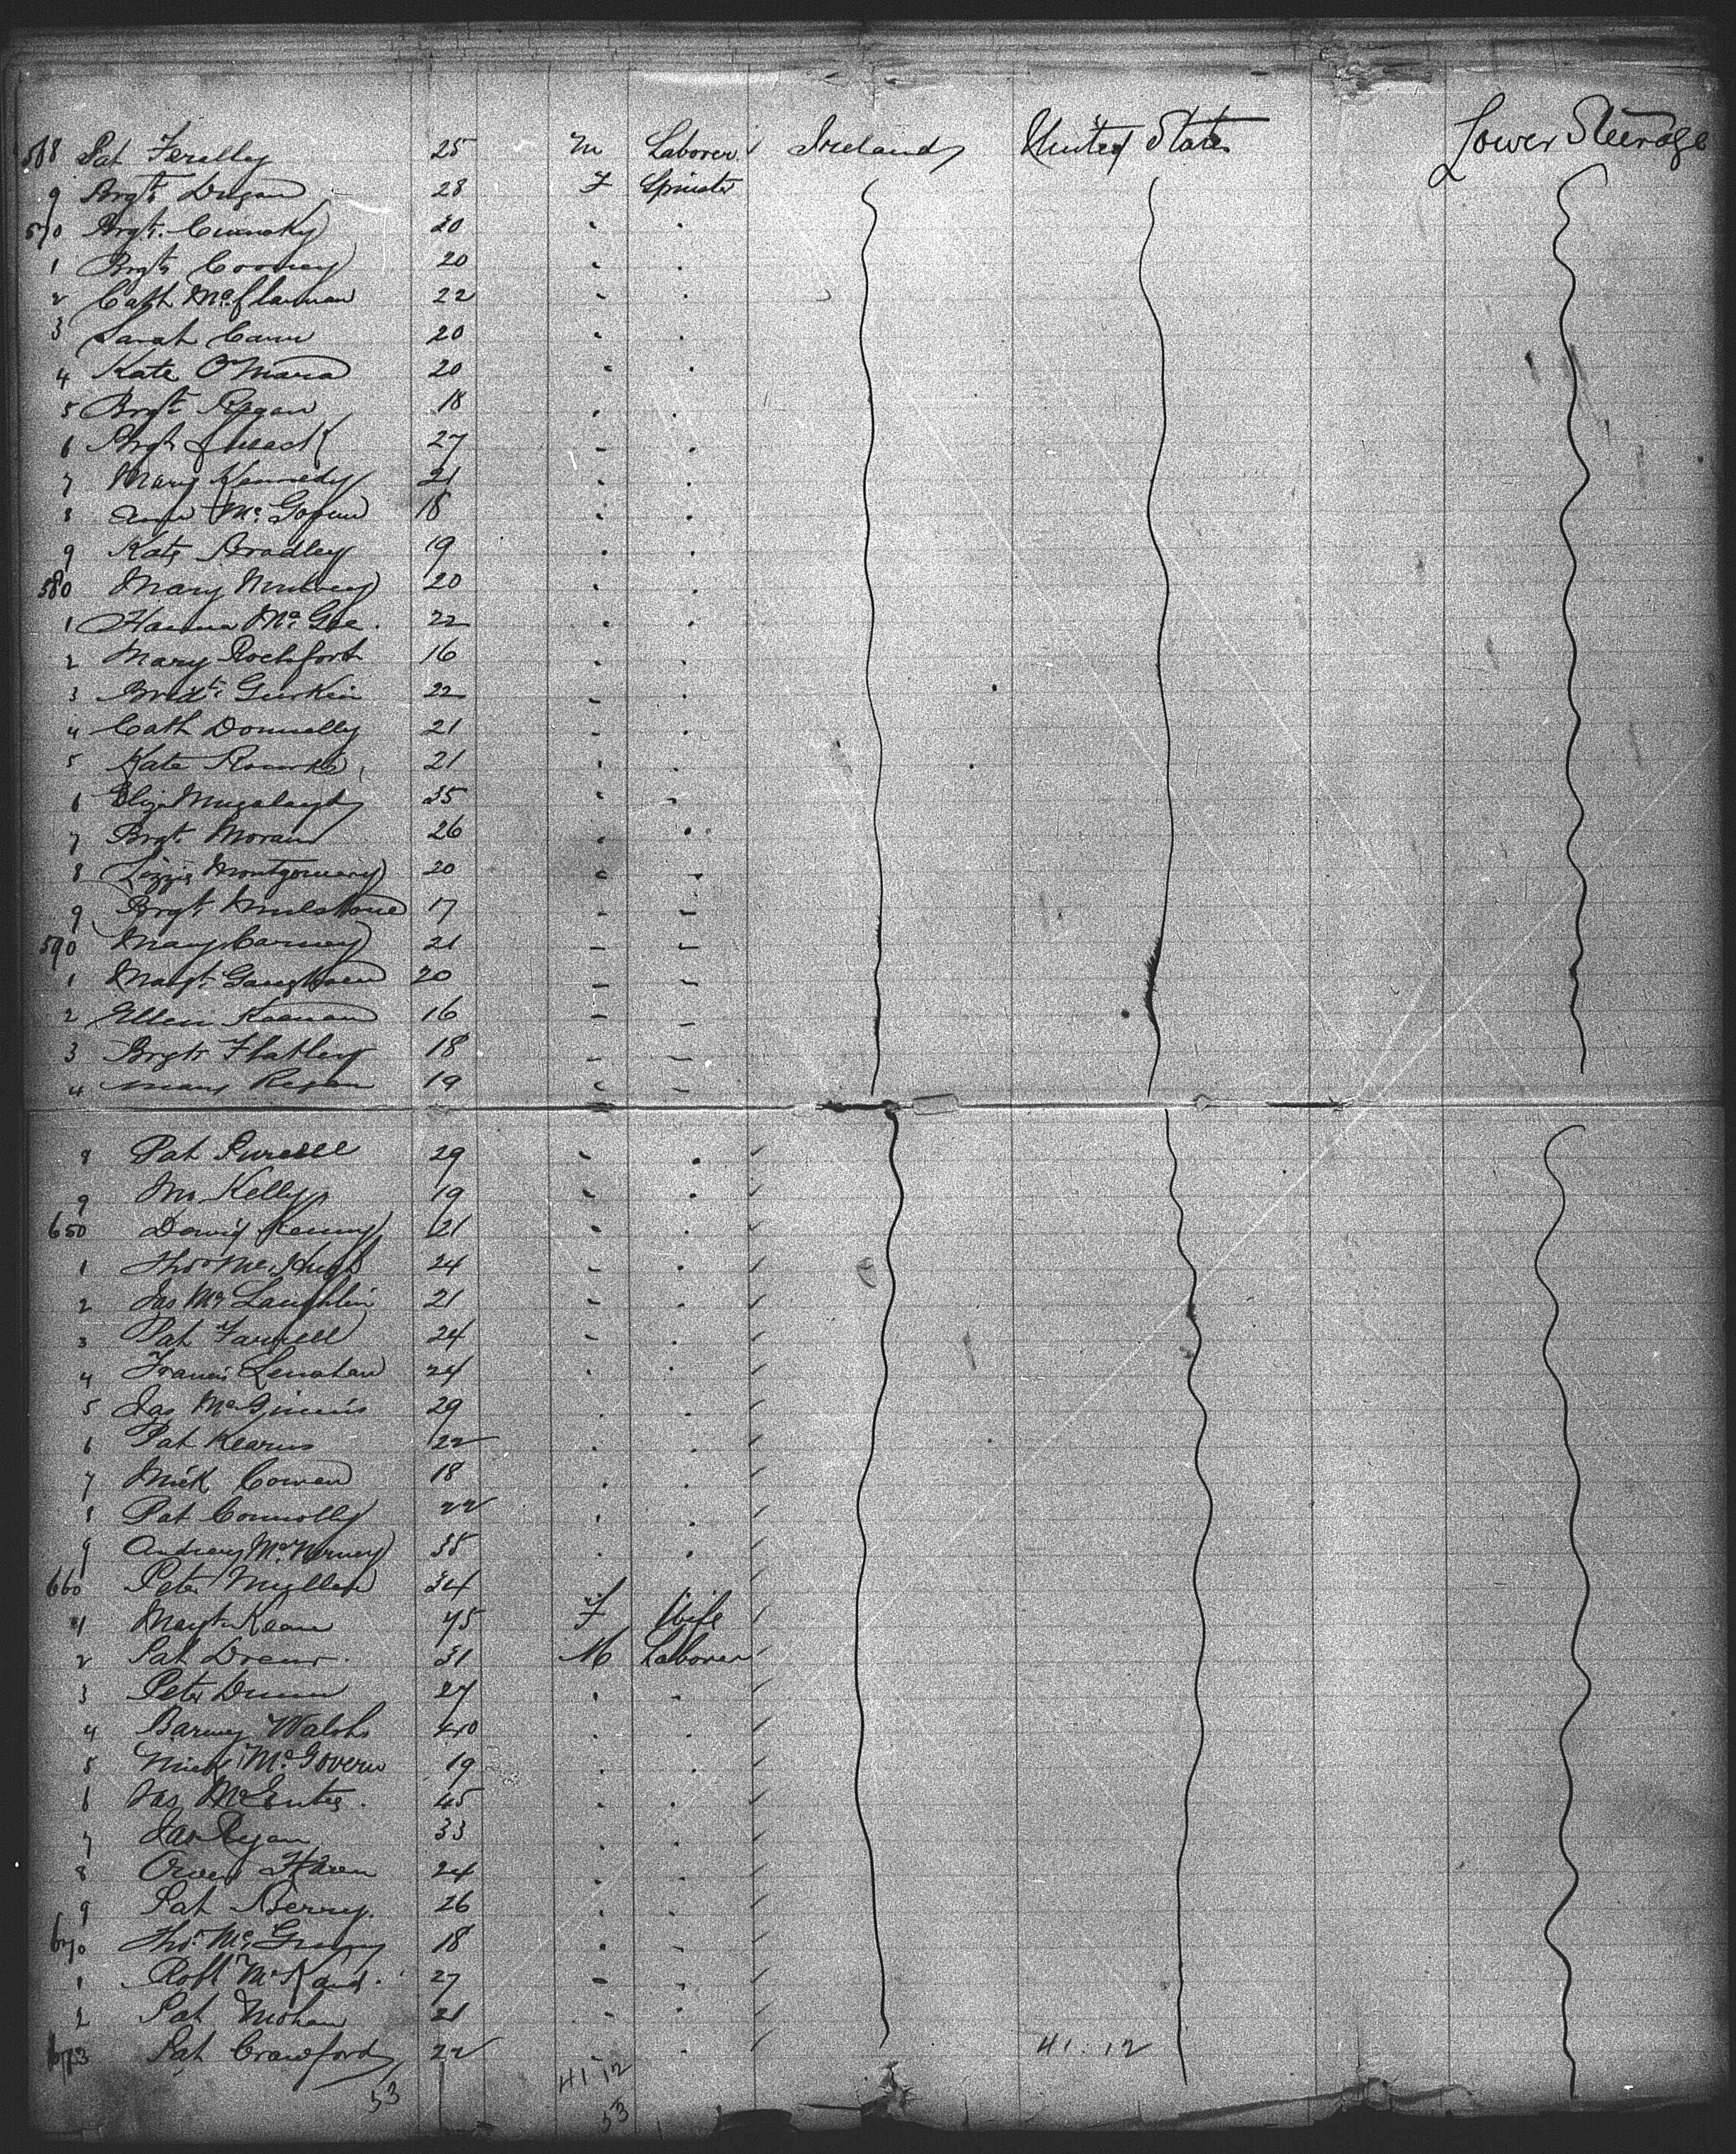 568 Pat Ferally 25 M Laborer Ireland United States Lower Steerage
9 Brgt. Dugan 28 F Spinster
570 Brgt. 20 " "
1 Brgt. Cooney 20 " "
2 Cath Mc 22 " "
3 Sarah 20 " "
4 Kate O'Mara 20 " "
5 Brgt. Regan 18 " "
6 Brgt. 27 " "
7 Mary Kennedy 21 " "
8 Mc 18 " "
9 Kate Bradley 19 " "
580 Mary 20 " "
1 Hanna McGee. 22 " "
2 Mary Rochfort 16 " "
3 Gurkin 22 " "
4 Cath Donnelly 21 " "
5 Kate Rourke 21 " "
6 Eliza 35 " "
7 Brgt. Moran 26 " "
8 Lizzie Montgomery 20 " "
9 Brgt. 17 " "
590 Mary Carney 21 " "
1 Margt. 20 " "
2 Ellen 16 " "
3 Brgt. Flatley 18 " "
4 Mary Regan 19 " "
8 Pat Purcell 29 " "
9 Kelly 19 " "
650 David Kenny 21 " "
1 Thos McHugh 24 " "
2 Jas McLaughlin 21 " "
3 Pat Farrell 24 " "
4 Francis Lenahan 24 " "
5 Jas McGinnis 29 " "
6 Pat Kearns 22 " "
7 Mick Cowan 18 " "
8 Pat Connolly 22 " "
9 Andrew 35 " "
660 Peter Mullen 34 " "
1 Margt Kean 45 F Wife
2 Pat 31 M Laborer
3 Peter Dunn 27 " "
4 Barney Walsh 40 " "
5 Mick McGovern 19 " "
6 Jas McEntee. 45 " "
7 Jas Ryan 33 " "
8 Owen 24 " "
9 Pat Berry. 26 " "
670 Thos. Mc 18 " "
1 Robt 27 " "
2 Pat Mohan 21 " "
673 Pat Crawford 22 " " 41.12
53 41 12
53